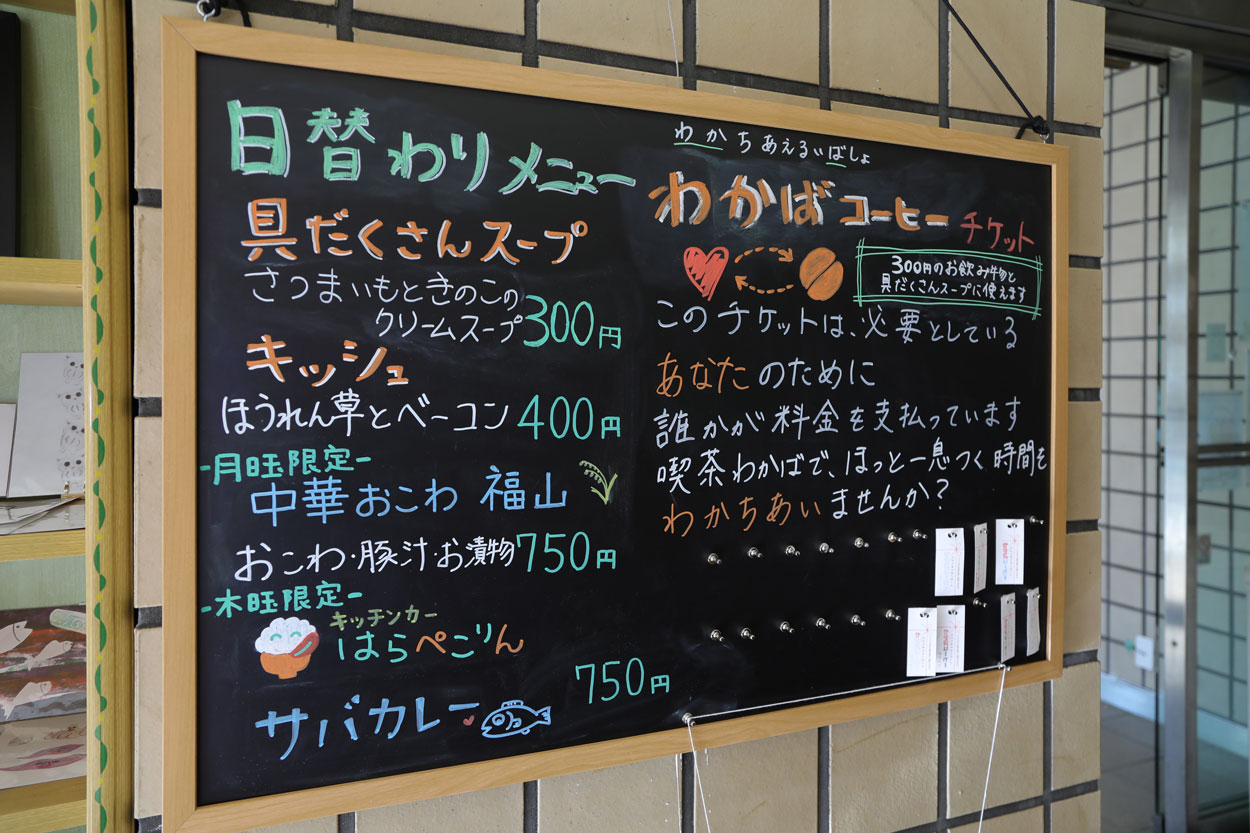 日替わりメニュー
具だくさんスープ
さつまいもときのこの
クリームスープ300円
キッシュ
ほうれん草とベーコン 400円
-月旺限定-
中華おこわ 福山
おこわ・豚汁・お漬物750円
-木旺限定-
キッチンカー
はらぺこりん
750円
サバカレー
わかちあえるいばしょ
わかばコーヒーチケット
300円のお飲み物と
具だくさんスープに使えます
このチケットは、必要としている
あなたのために
誰かが料金を支払っています
喫茶わかばで、ほっと一息つく時間を
わかちあいませんか?